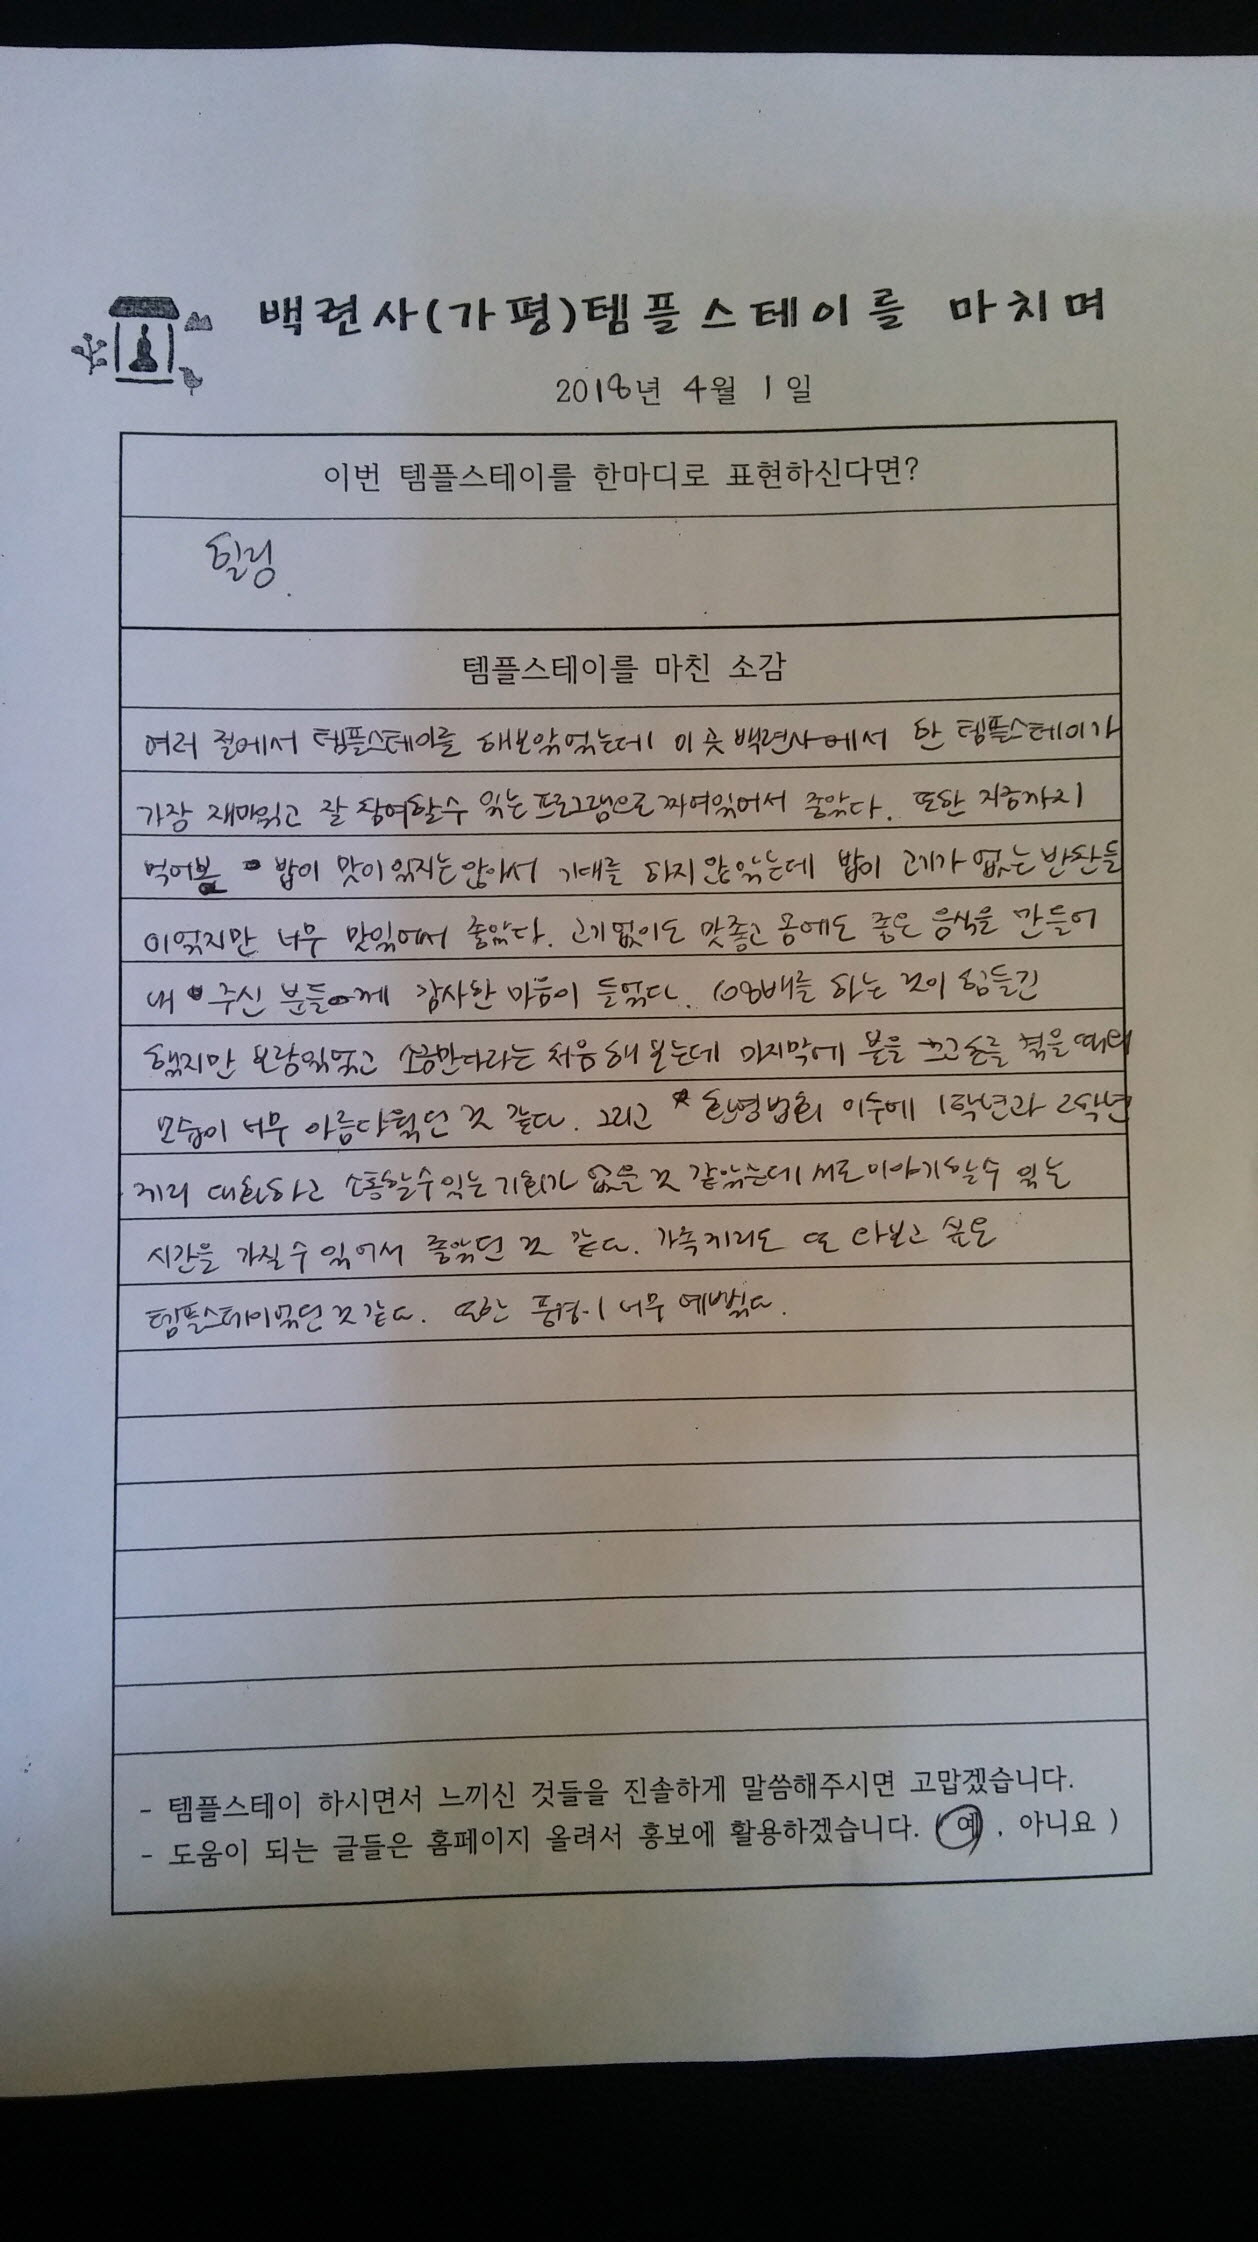 백련사(가평)템플스테이를 마치며
2018년 4월 1일
이번 템플스테이를 한마디로 표현하신다면?
힐링.
템플스테이를 마친 소감
여러 절에서 템플스테이를 해보았었는데 이 곳 백련사에서 한 템플스테이가
가장 재미있고 잘 참여할수 있는 프로그램으로 짜여있어서 좋았다. 또한 지금까지
먹어본 밥이 맛이 있지는 않아서 기대를 하지 않았는데 밥이 고기가 없는 반찬들
이었지만 너무 맛있어서 좋았다. 고기없이도 맛좋고 몸에도 좋은 음식을 만들어
내 주신 분들께 감사한 마음이 들었다. 108배를 하는 것이 힘들긴
했지만 보람있었고 소금만다라는 처음 해 보는데 마지막에 불을 끄고 초를 켰을 때의
모습이 너무 아름다웠던 것 같다. 그리고 환영법회 이후에 1학년과 2학년
끼리 대화하고 소통할수있는 기회가 없을 것 같았는데 서로 이야기할수 있는
시간을 가질 수 있어서 좋았던 것 같다. 가족끼리도 또 와보고 싶은
템플스테이였던 것 같다. 또한 풍경이 너무 예뻤다.
- 템플스테이 하시면서 느끼신 것들을 진솔하게 말씀해주시면 고맙겠습니다.
- 도움이 되는 글들은 홈페이지 올려서 홍보에 활용하겠습니다. ( 예 , 아니요 )